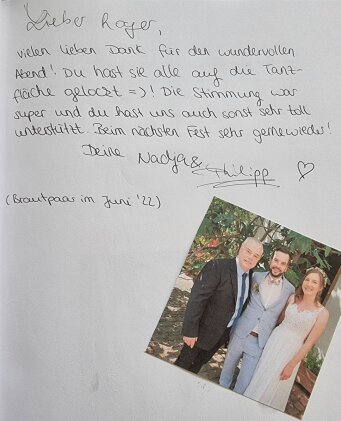 Lieber Roger,
vielen lieben Dank für den wundervollen
Abend! Du hast sie alle auf die Tanz-
fläche gelockt =)! Die Stimmung war
super und du hast uns auch sonst sehr toll
unterstützt. Beim nächsten Fest sehr gerne wieder!
Deine Nadja &
Philipp
(Brautpaar im Juni '22)